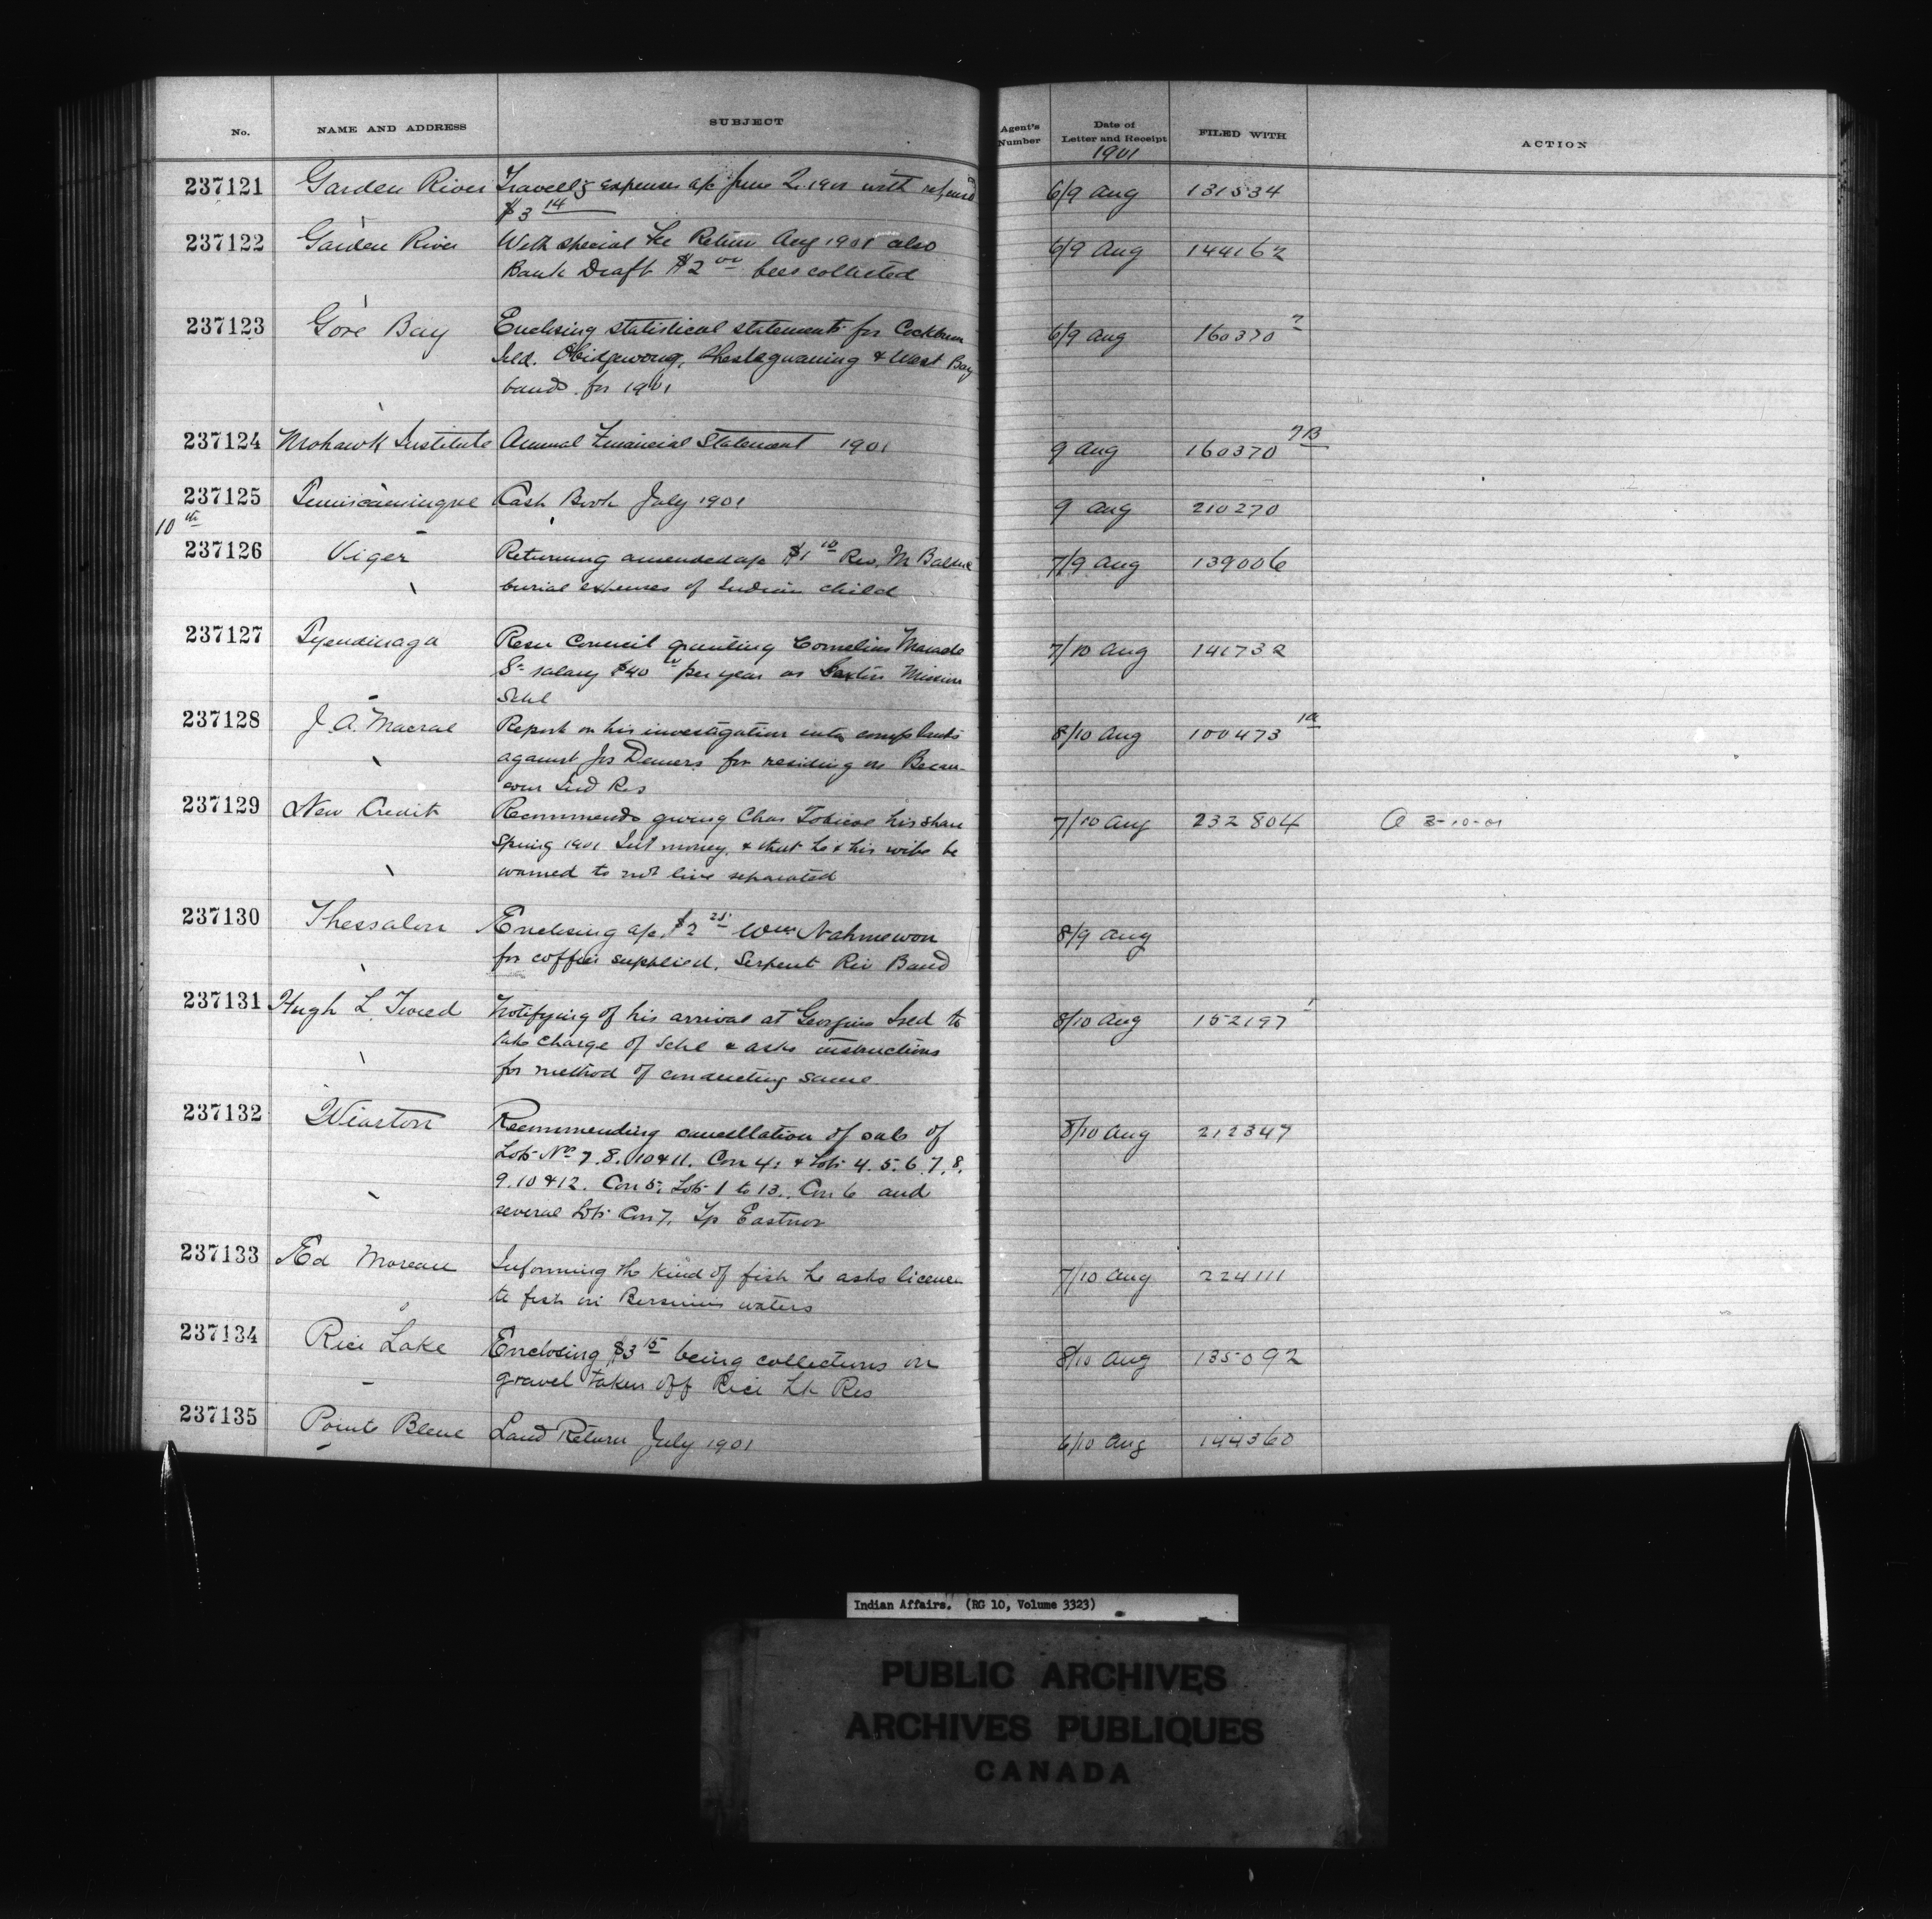 No. NAME AND ADDRESS SUBJECT Agent's Number Date of Letter and Receipt FILED WITH ACTION
1901
237121 Garden River Travell'g expenses a/c June 2. 1901 with refund 6/9 Aug 131534
$3 14
237122 Garden River With special Fee Return Aug 1901 also 6/9 Aug 144162
Bank Draft $2 00 fees collected
237123 Gore Bay Enclosing statistical statements for Cockburn 6/9 Aug 160370 7
Isld. Obidgewong, Sheshegwaning & West Bay
bands for 1901
237124 Mohawk Institute Annual Financial Statement 1901 9 Aug 160370 7B
237125 Temiscamingue Cash Book July 1901 9 Aug 210270
10 th
237126 Viger Returning amended a/c $1 10 Rev. M 7/9 Aug 139006
burial expenses of Indian child
237127 Tyendinaga Resn Council granting Cornelius Maracle 7/10 Aug 141732
Sr salary $40 00 per year as Sexton Mission
Schl
237128 J A. Macrae Report on his investigation into complaints 8/10 Aug 100473 1a
against Jos Demers for residing on Becan-
cour Ind Res
237129 New Credit Recommends giving Chas Tobicoe his share 7/10 Aug 232804 A 3-10-01
Spring 1901 Int money, & that he & his wife be
warned to not live separated
237130 Thessalon Enclosing a/c $2 25 Wm Nahmewon 8/9 Aug
for coffin supplied. Serpent Riv Band
237131 Hugh L. Tweed Notifying of his arrival at Georgina Isld to 8/10 Aug 152197 1
take charge of Schl & asks instructions
for method of conducting same
237132 Wiarton Recommending cancellation of sale of 8/10 Aug 212347
Lots Nos 7. 8. 10 & 11. Con 4; & Lots 4. 5. 6. 7. 8.
9. 10 & 12. Con 5; Lots 1 to 13. Con 6 and
several Lots Con 7, Tp Eastnor
237133 Ed Moreau Informing the kind of fish he asks license 7/10 Aug 224111
to fish in Bersimis waters
237134 Rice Lake Enclosing $3 15 being collections on 8/10 Aug 135092
gravel taken off Rice Lk Res
237135 Pointe Bleue Land Return July 1901 6/10 Aug 144360
Indian Affairs. (RG 10, Volume 3323)
PUBLIC ARCHIVES
ARCHIVES PUBLIQUES
CANADA